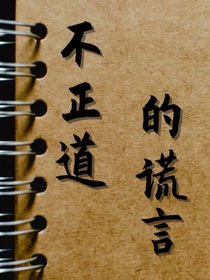 不正道
的谎言